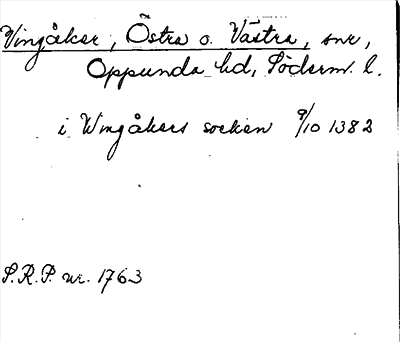 Vingåker, Östra o. Västra, snr,
Oppunda hd, Söderm. l.
i Wingåkers socken 9/10 1382
S.R.P. nr. 1763